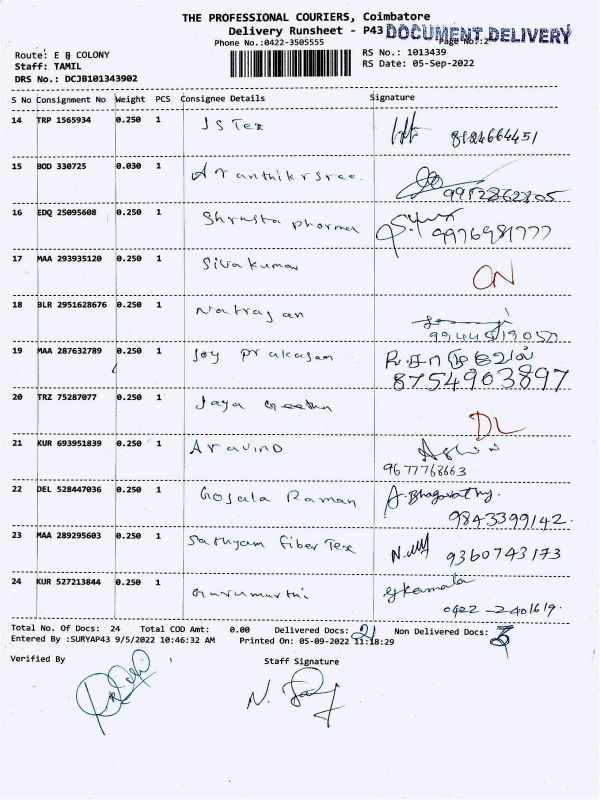 THE PROFESSIONAL COURIERS, Coimbatore
Delivery Runsheet - P43 DOCUMENT DELIVERY
Phone No.:0422-3505555 Page No.:2
Route: E B COLONY RS No.: 1013439
Staff: TAMIL RS Date: 05-Sep-2022
DRS No.: DCJB101343902
S No Consignment No Weight PCS Consignee Details Signature
14 TRP 1565934 0.250 1 JS Tex 8124664451
15 BOD 330725 0.030 1 9952862805
16 EDQ 25095608 0.250 1 9976981777
17 MAA 293935120 0.250 1 Sivakumar
18 BLR 2951628676 0.250 1 Natrajan
19 MAA 287632789 0.250 1 Joy prakasam
8754903897
20 TRZ 75287077 0.250 1 Jaya Geetha
DL
21 KUR 693951839 0.250 1 Aravind
9677768663
22 DEL 528447036 0.250 1 Gosala Raman A. Bhagavathy.
9843399142.
23 MAA 289295603 0.250 1 Sathyam fiber Tex 9360743173
24 KUR 527213844 0.250 1 Gurumurthi gkamala
0422 - 2401619.
Total No. Of Docs: 24 Total COD Amt: 0.00 Delivered Docs: 21 Non Delivered Docs: 3
Entered By :SURYAP43 9/5/2022 10:46:32 AM Printed On: 05-09-2022 11:18:29
Verified By Staff Signature